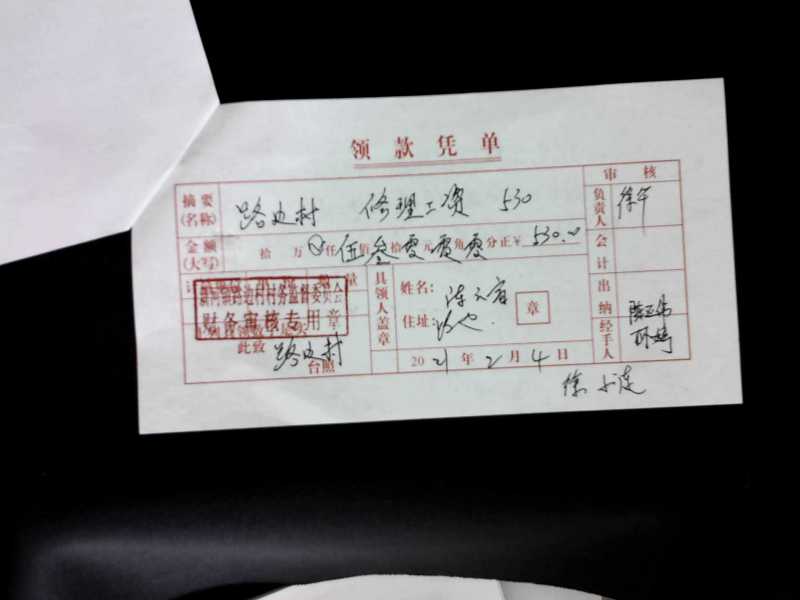 领款凭单
摘要(名称) 路边村 修理工资 530
审核
负责人 徐
金额(大写) 拾 万 仟 伍 佰 叁 拾 零 元 零 角 零 分 正 ¥ 530.00
会计
新河镇路边村村务监督委员会
财务审核专用章
此致
路边村
台照
具领人盖章
姓名:
住址: 路边
章
2021年2月4日
出纳
经手人
徐